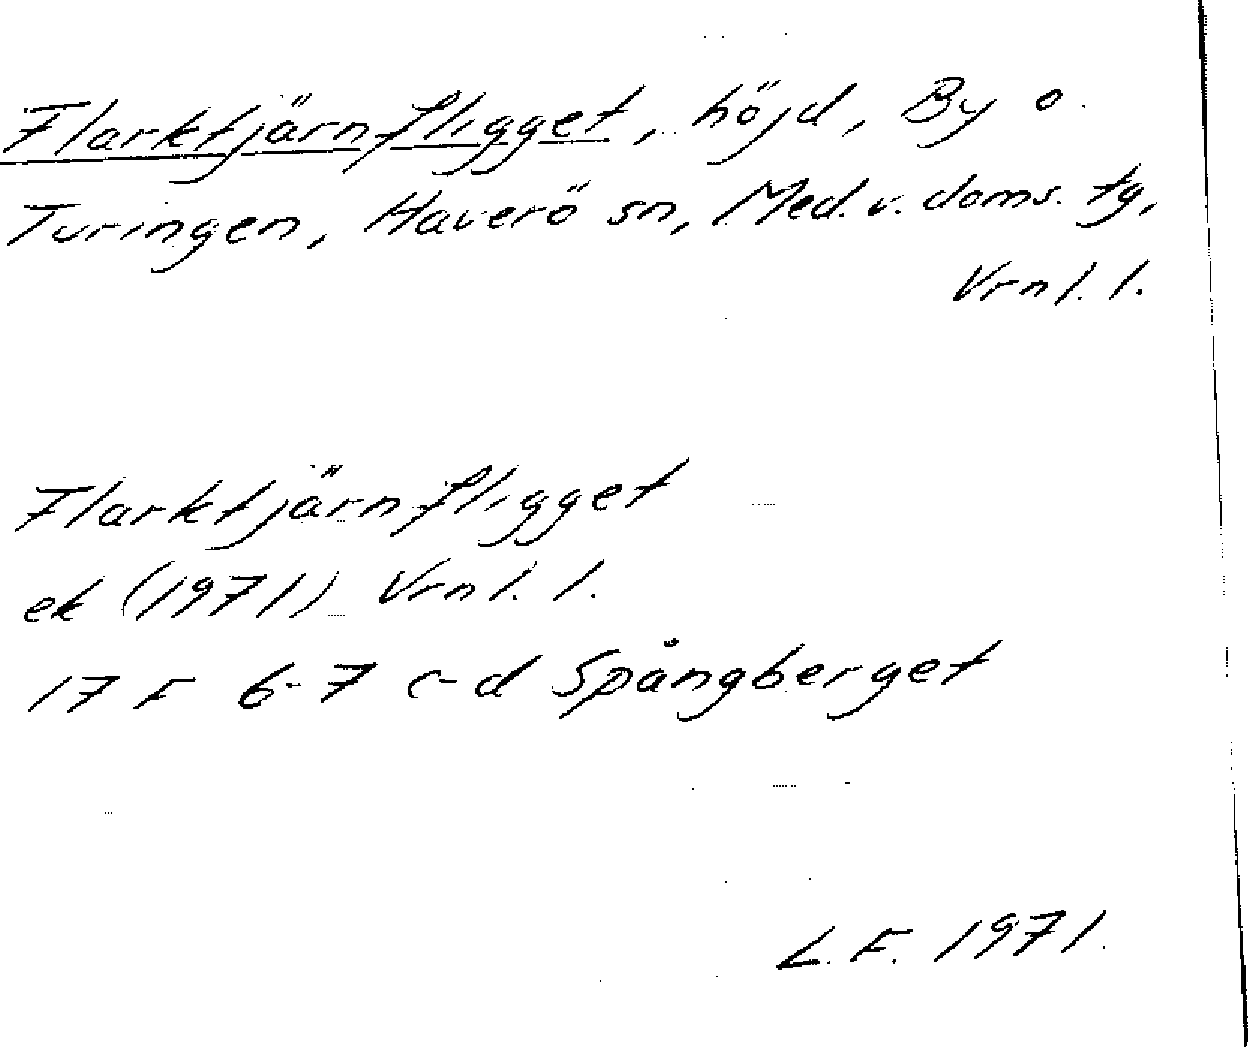 Flarktjärnfligget, höjd, By o
Turingen, Haverö sn, Med. v. doms. tg,
Vrnl. l.
Flarktjärnfligget
ek (1971) Vrnl. l.
17 F 6-7 c-d Spångberget
L. F. 1971.